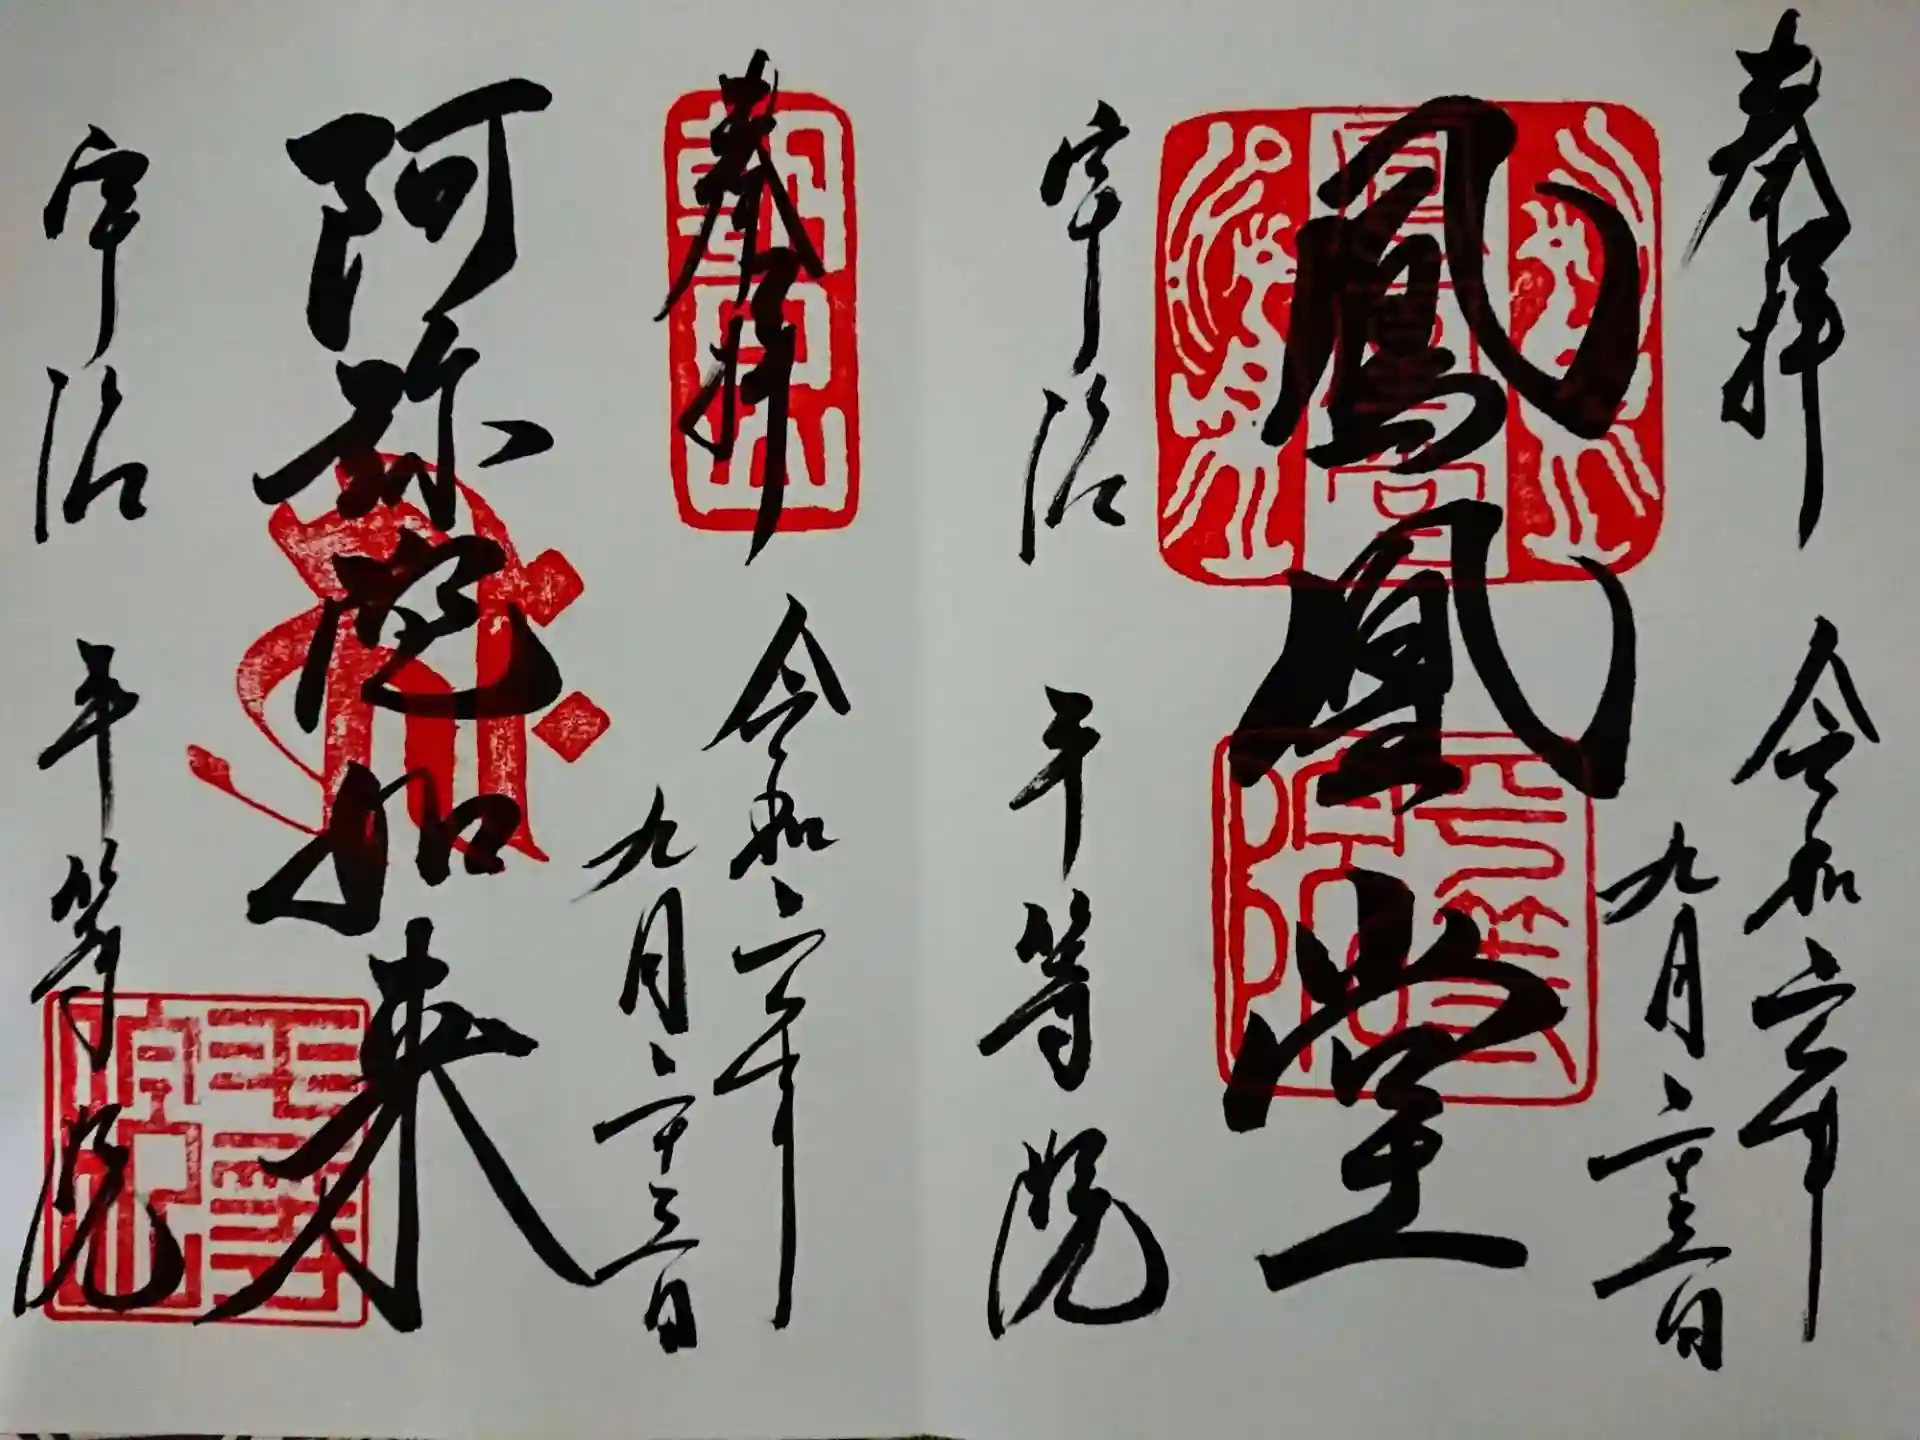 奉拝
令和六年
九月二十三日
鳳凰堂
宇治 平等院
奉拝
朝日山
令和六年
九月二十三日
阿弥陀如来
宇治 平等院
平等院印